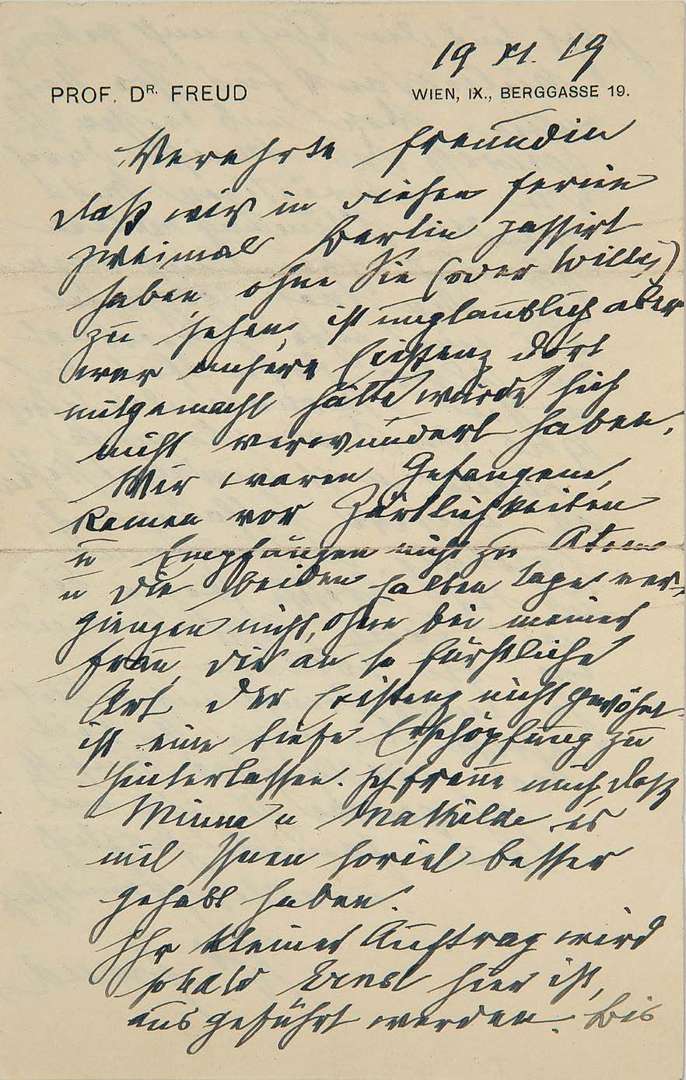 19 XI. 19
PROF. DR. FREUD
WIEN, IX., BERGGASSE 19.
Verehrte Freundin
daß wir in diesen Ferien
zweimal Berlin passirt
haben, ohne Sie (oder Willy)
zu sehen, ist unglaublich aber
wer unsere Existenz dort
mitgemacht hätte würde sich
nicht verwundert haben.
Wir waren Gefangene,
kamen vor Zärtlichkeiten
u Empfängen nicht zu Atem
u die beiden halben Tage ver-
giengen nicht, ohne bei meiner
Frau, die an so fürstliche
Art der Existenz nicht gewöhnt
ist eine tiefe Erschöpfung zu
hinterlassen. Ich freue mich, daß
Minna u Mathilde es
mit Ihnen soviel besser
gehabt haben.
Ihr kleiner Auftrag wird
sobald Ernst hier ist,
ausgeführt werden. Bis